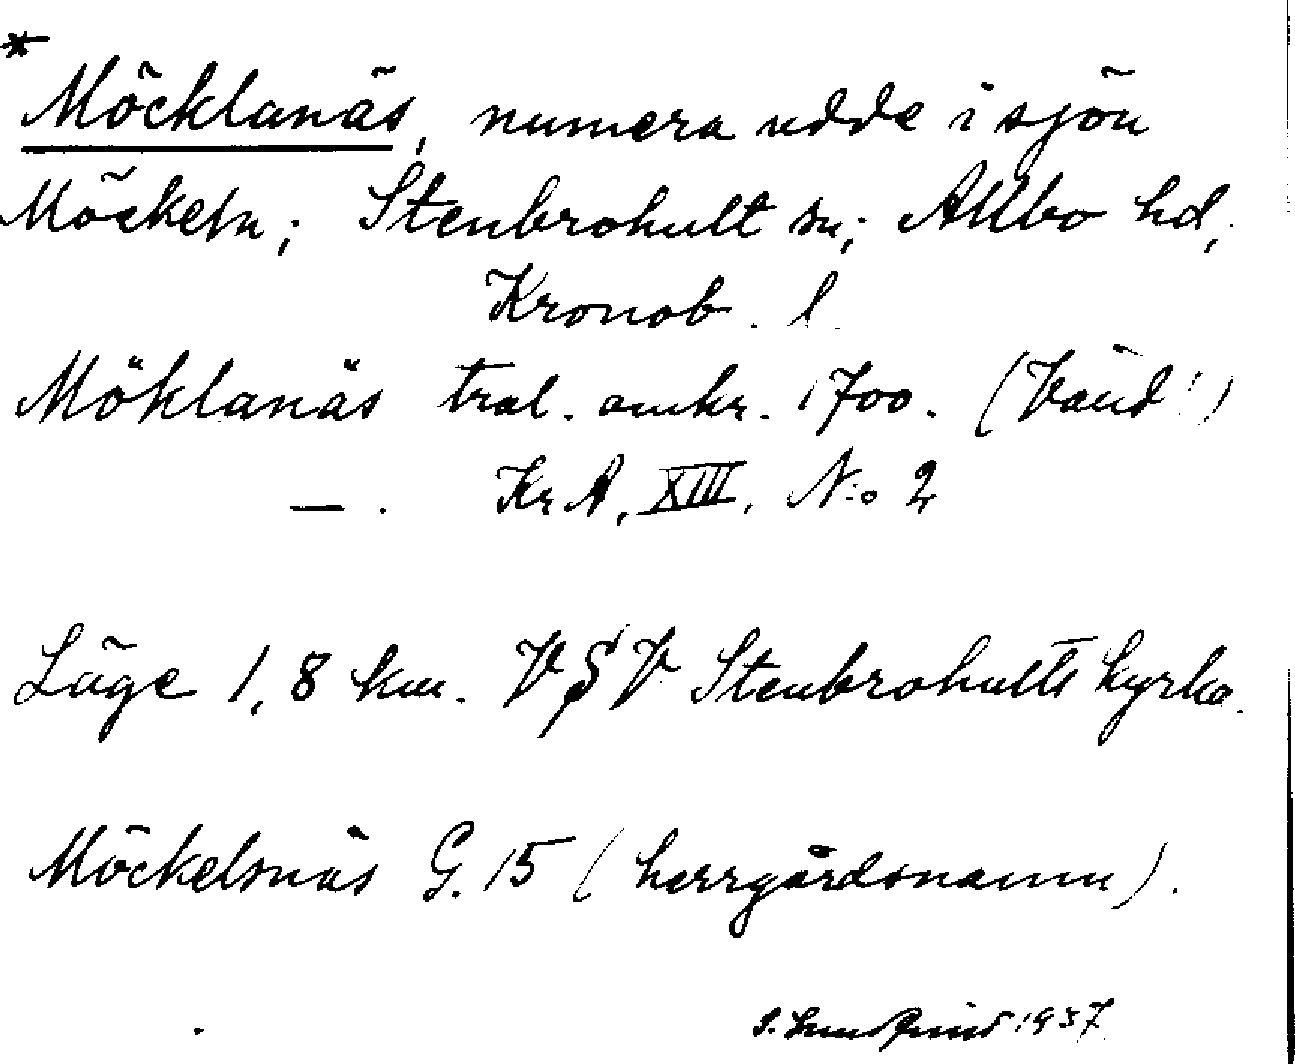 * Möcklanäs, numera udde i sjön
Möckeln; Stenbrohult sn; Allbo hd,
Kronob. l.
Möklanäs tral. omkr. 1700. (Vänd!)
— . Kr A, XIII, N:o 2
Läge 1,8 km. V S V Stenbrohults kyrka.
Möckelsnäs G. 15 (herrgårdsnamn).
1937